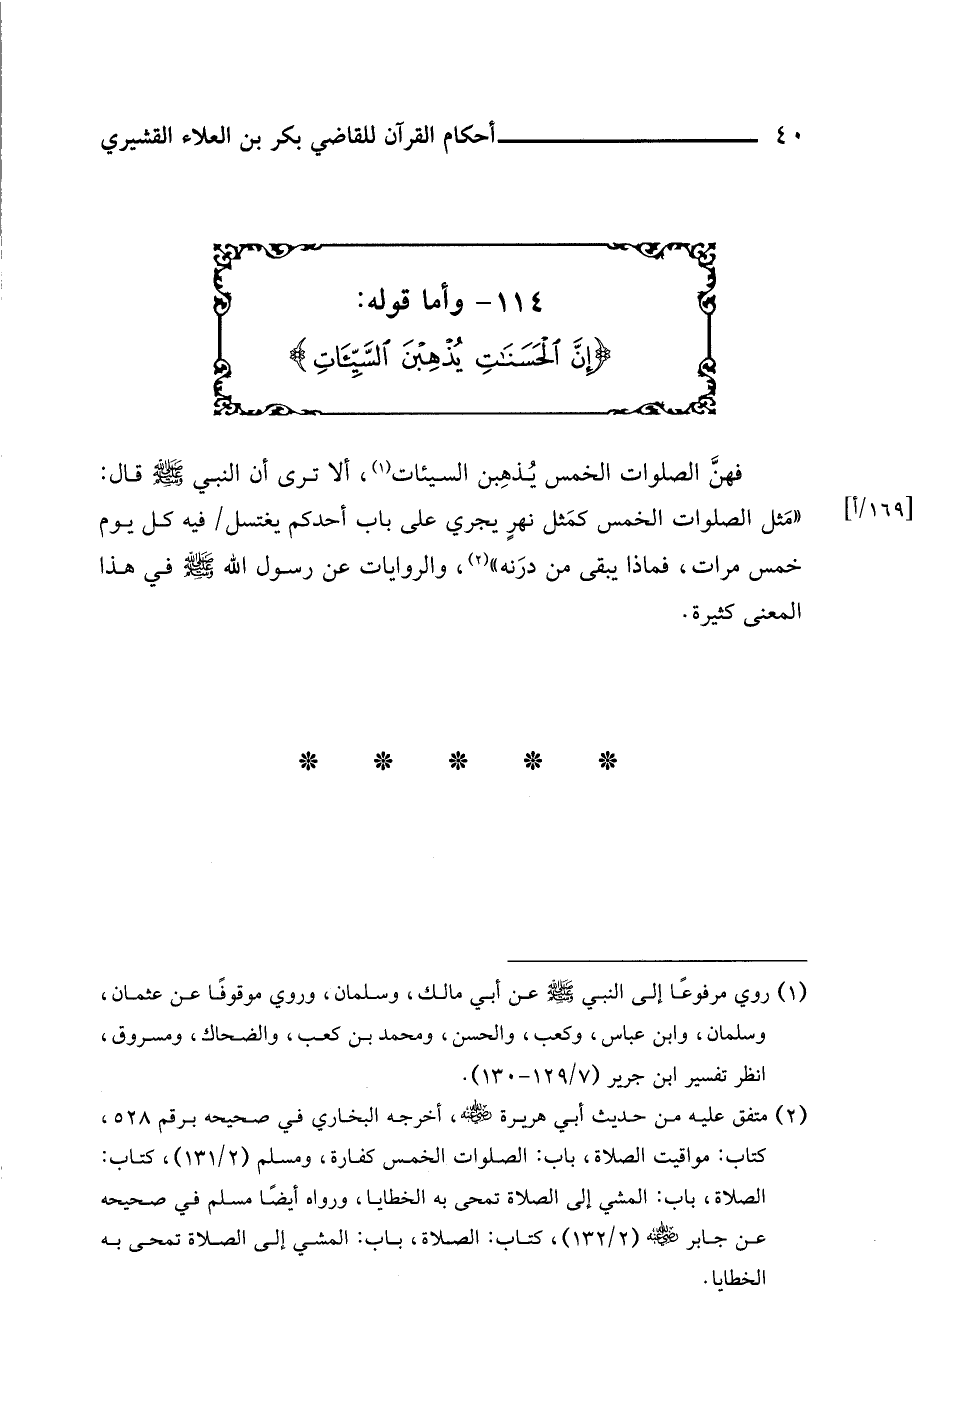 ٤٠ أحكام القرآن للقاضي بكر بن العلاء القشيري
١١٤- وأما قوله:
﴿إِنَّ ٱلْحَسَنَٰتِ يُذْهِبْنَ ٱلسَّيِّـَٔاتِ﴾
فهنَّ الصلوات الخمس يُذهِبن السيئات(١)، ألا ترى أن النبي ﷺ قال:
[١٦٩/أ]
«مَثل الصلوات الخمس كمَثل نهرٍ يجري على باب أحدكم يغتسل/ فيه كل يوم
خمس مرات، فماذا يبقى من درَنه»(٢)، والروايات عن رسول الله ﷺ في هذا
المعنى كثيرة.
(١) روي مرفوعًا إلى النبي ﷺ عن أبي مالك، وسلمان، وروي موقوفًا عن عثمان،
وسلمان، وابن عباس، وكعب، والحسن، ومحمد بن كعب، والضحاك، ومسروق،
انظر تفسير ابن جرير (١٢٩/٧-١٣٠).
(٢) متفق عليه من حديث أبي هريرة رضي الله عنه، أخرجه البخاري في صحيحه برقم ٥٢٨،
كتاب: مواقيت الصلاة، باب: الصلوات الخمس كفارة، ومسلم (١٣١/٢)، كتاب:
الصلاة، باب: المشي إلى الصلاة تمحى به الخطايا، ورواه أيضًا مسلم في صحيحه
عن جابر رضي الله عنه (١٣٢/٢)، كتاب: الصلاة، باب: المشي إلى الصلاة تمحى به
الخطايا.